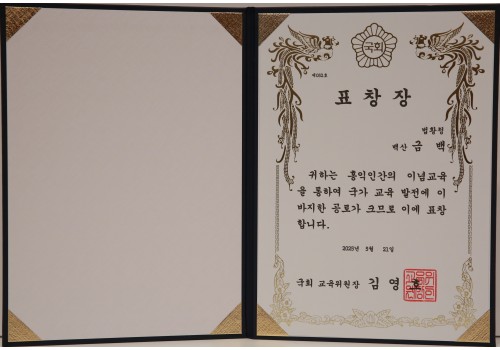 국회
표창장
법왕정
백산 금백
귀하는 홍익인간의 이념교육
을 통하여 국가 교육 발전에 이
바지한 공로가 크므로 이에 표창
합니다.
2025년 9월 21일
국회 교육위원장 김영호